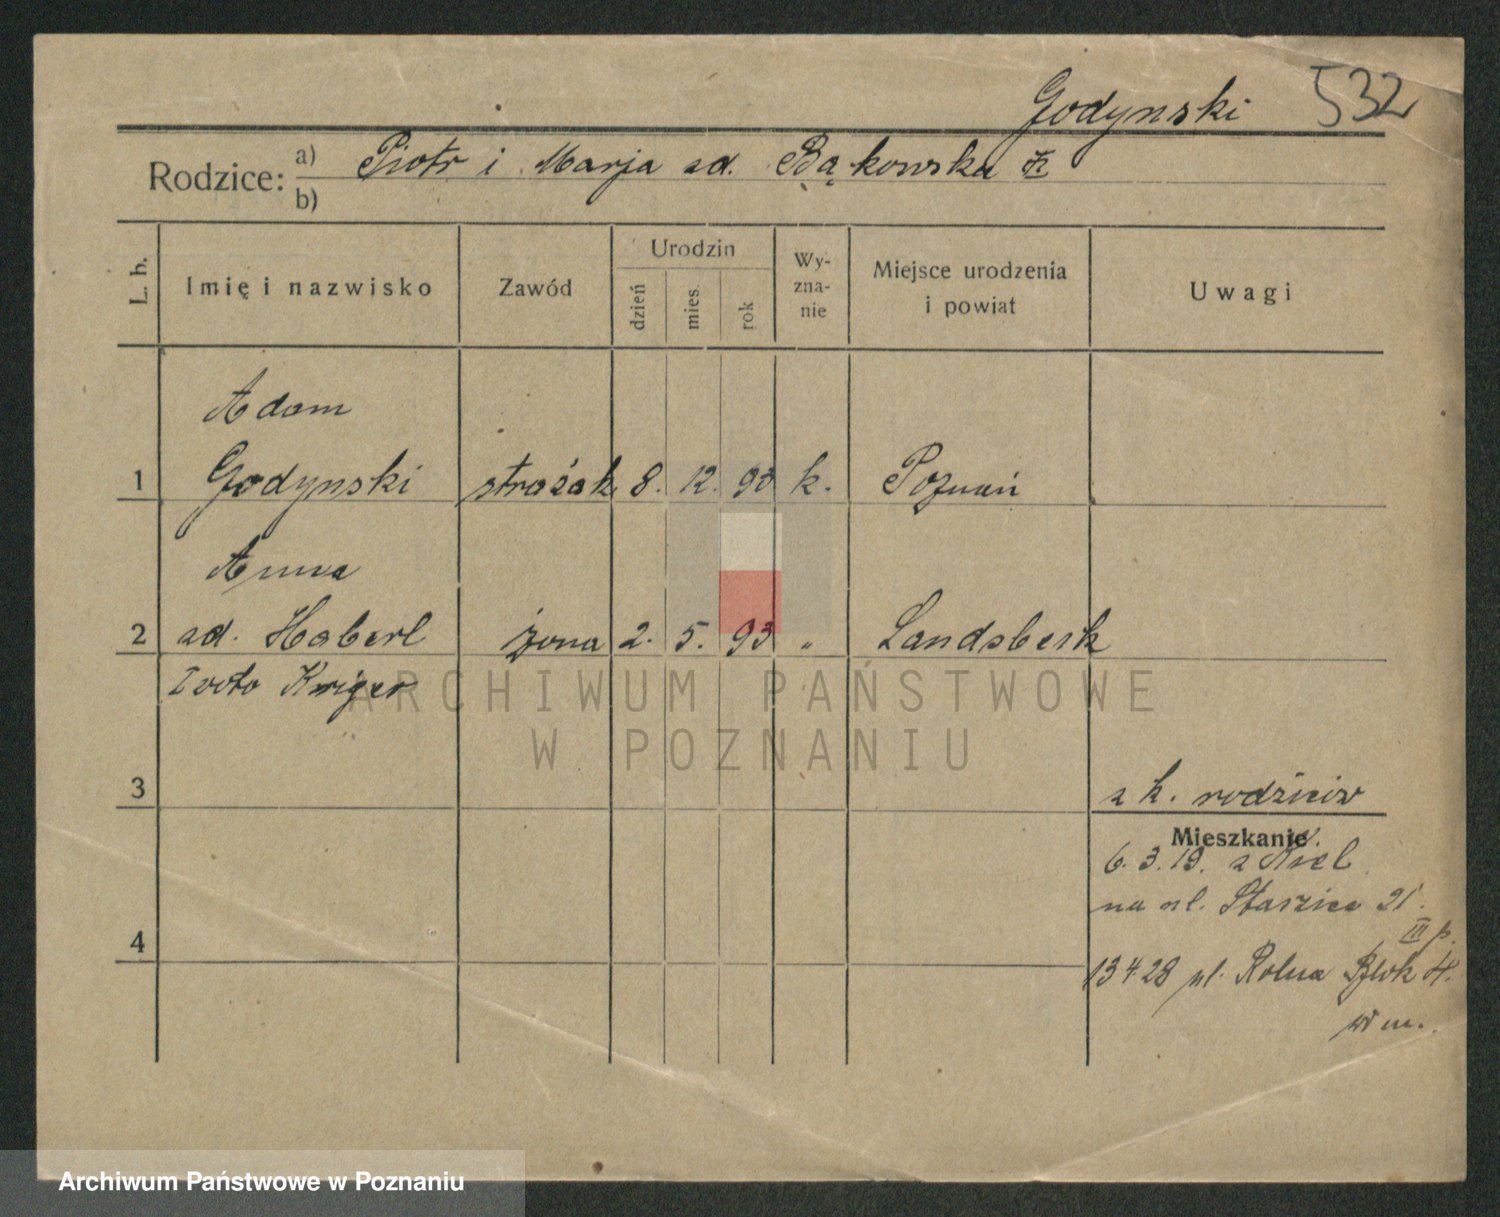 Godynski 532
Rodzice: a) Piotr i Marja zd. Bąkowska
b)
L. b. Imię i nazwisko Zawód Urodzin dzień mies. rok Wy-zna-nie Miejsce urodzenia i powiat Uwagi
Adam
1 Godynski strażak 8. 12. 93 k. Poznań
Anna
2 zd. Haberl żona 2. 5. 93 „ Landsberk
I voto Kriger
ARCHIWUM PAŃSTWOWE
W POZNANIU
3 z k. rodziców
Mieszkanie
6. 3. 19. z Kiel
na ul. Staszica 21.
III p.
4
13 4 28 ul. Rolna Blok 4.
w m.
Archiwum Państwowe w Poznaniu